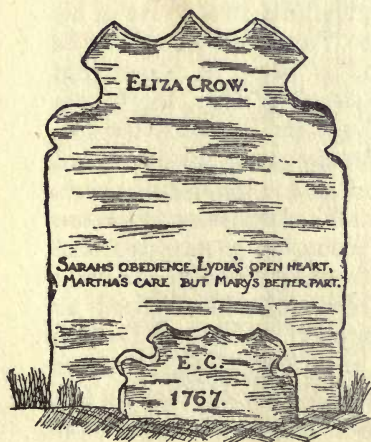 ELIZA CROW.
SARAHS OBEDIENCE, LYDIA'S OPEN HEART,
MARTHA'S CARE BUT MARY'S BETTER PART.
E. C.
1767.